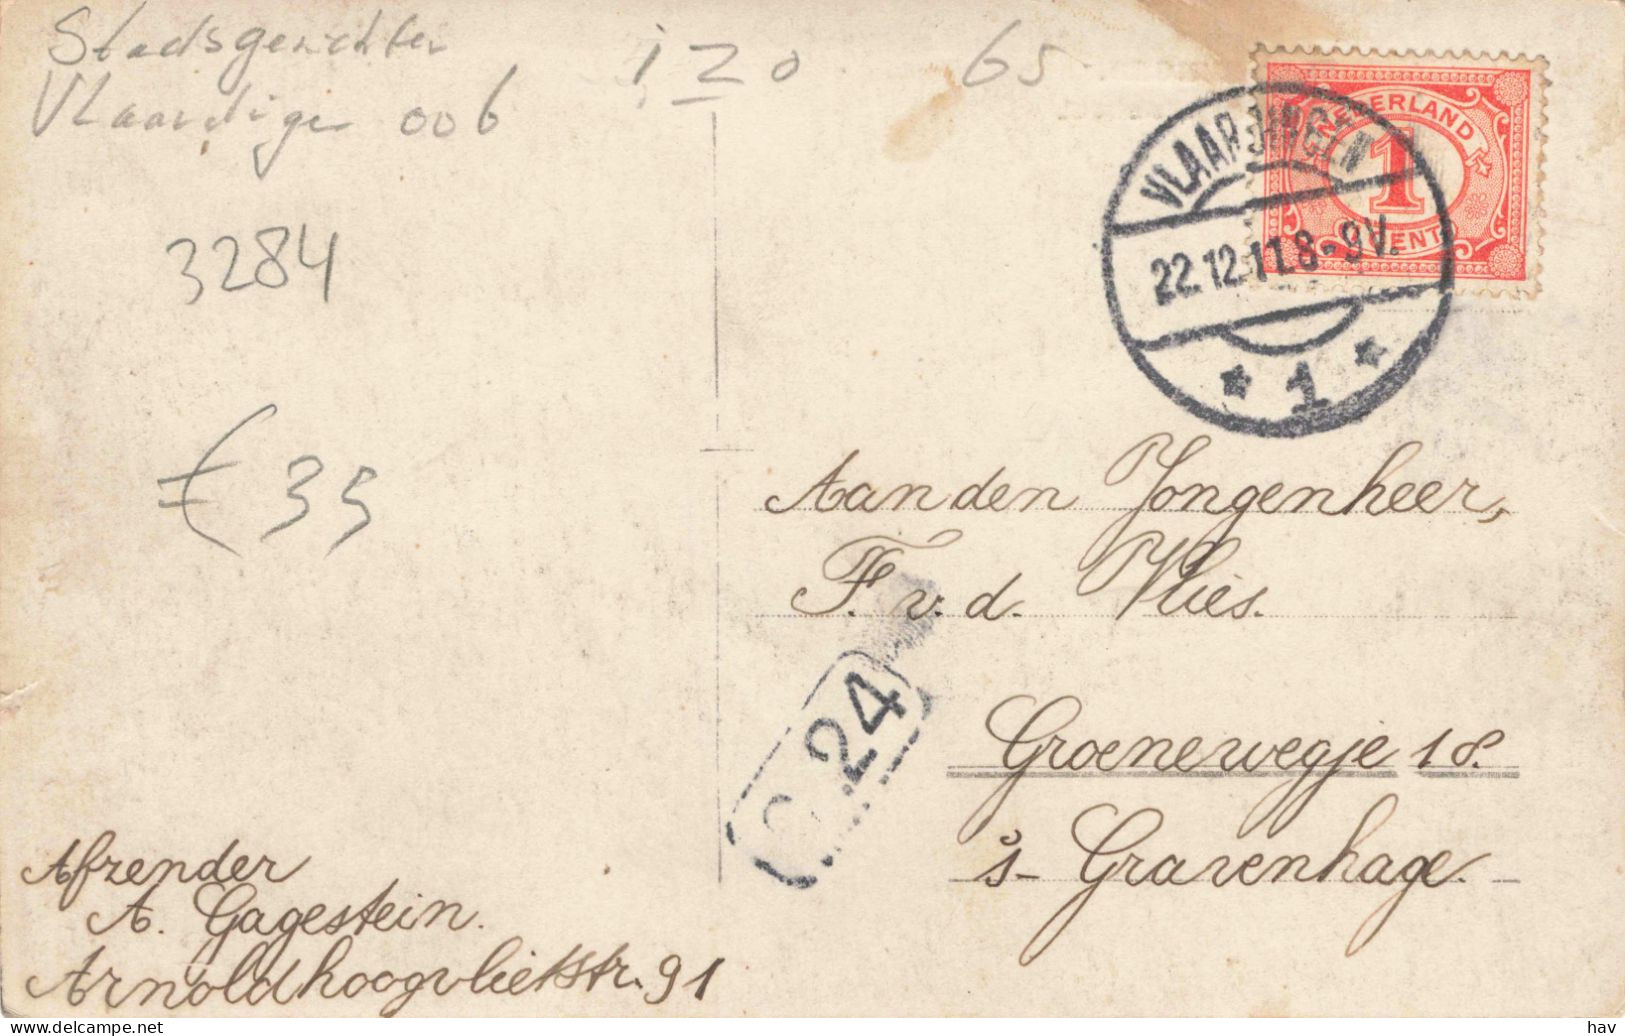 Stadsgezichten
Vlaardigen 006
iZo
65
3284
€ 35
NEDERLAND
1
CENT
VLAARDINGEN
22.12.11.8-9V.
1
Aan den Jongenheer,
F. v. d. Vlies.
Groenewegje 18.
's-Gravenhage.
24
Afzender
A. Gagestein.
Arnold hoogvlietstr. 91
delcampe.net
hav